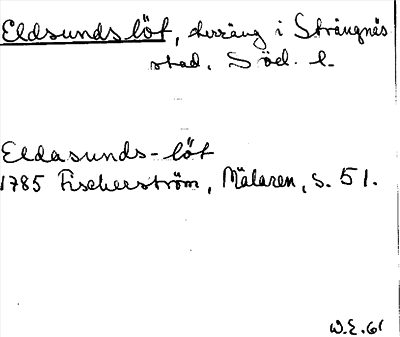 Eldsundslöt, terräng i Strängnäs
stad. Söd. l.
Eldasunds-löt
1785 Fischerström, Mälaren, s. 51.
W.E. 61